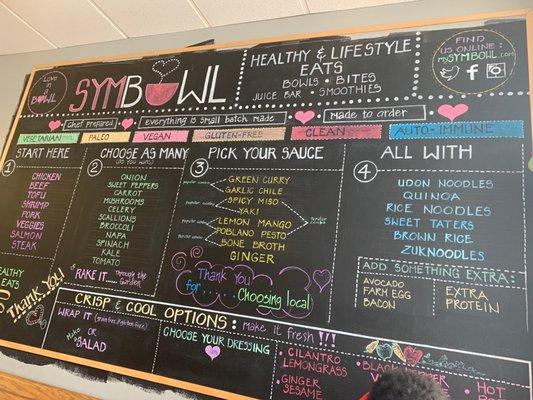 Love in
a BOWL
SYMBOWL
HEALTHY & LIFESTYLE
EATS
BOWLS • BITES
JUICE BAR • SMOOTHIES
FIND
US ONLINE:
mySYMBOWL.com
Chef Prepared
everything is small batch
made to order
VEGETARIAN
PALEO
VEGAN
GLUTEN-FREE
CLEAN
AUTO-IMMUNE
1
START HERE
CHICKEN
BEEF
TOFU
SHRIMP
PORK
VEGGIES
SALMON
STEAK
2
CHOOSE AS MANY
ONION
SWEET PEPPERS
CARROT
MUSHROOMS
CELERY
SCALLIONS
BROCCOLI
NAPA
SPINACH
KALE
TOMATO
RAKE IT through the
Garden
3
PICK YOUR SAUCE
GREEN CURRY
GARLIC CHILE
SPICY MISO
YAKI
LEMON MANGO
POBLANO PESTO
BONE BROTH
GINGER
Thank You
for Choosing local
4
ALL WITH
UDON NOODLES
QUINOA
RICE NOODLES
SWEET TATERS
BROWN RICE
ZUKNOODLES
ADD SOMETHING EXTRA:
AVOCADO
FARM EGG
BACON
EXTRA
PROTEIN
HEALTHY
Thank You
CRISP & COOL OPTIONS:
make it fresh!!!
WRAP IT
OR
Make
a SALAD
CHOOSE YOUR DRESSING
CILANTRO
LEMONGRASS
GINGER
SESAME
HOT